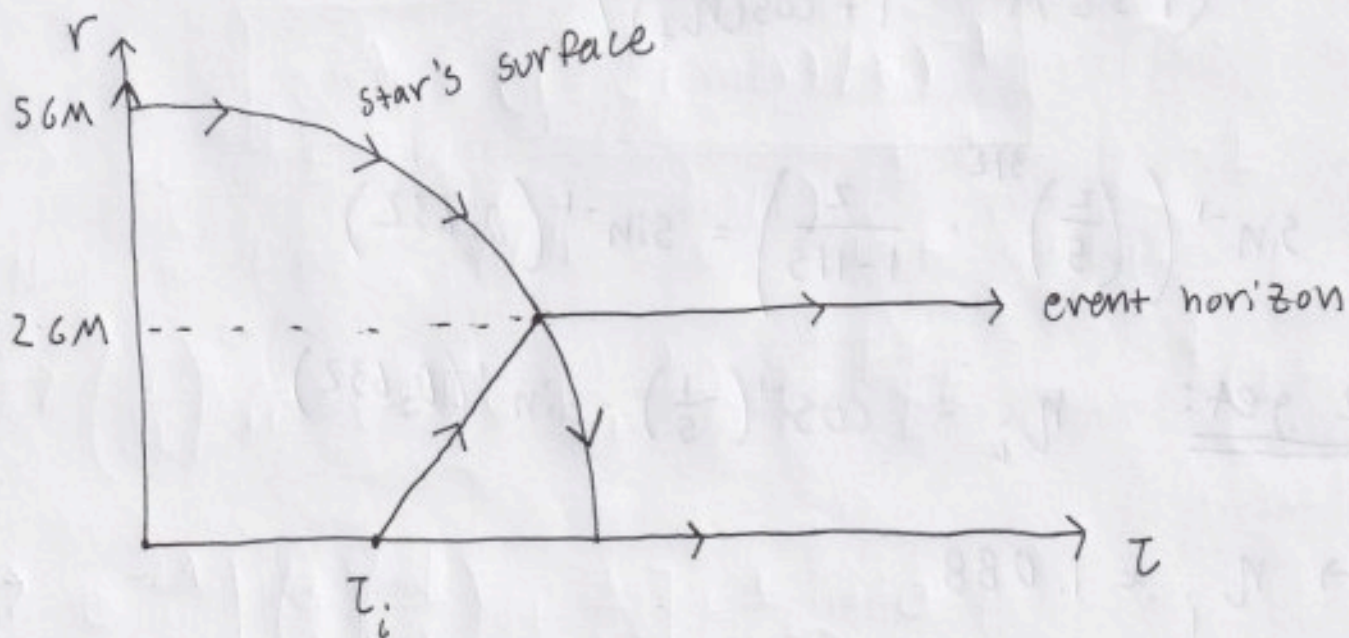 r
star's surface
5GM
2GM
event horizon
τᵢ
τ